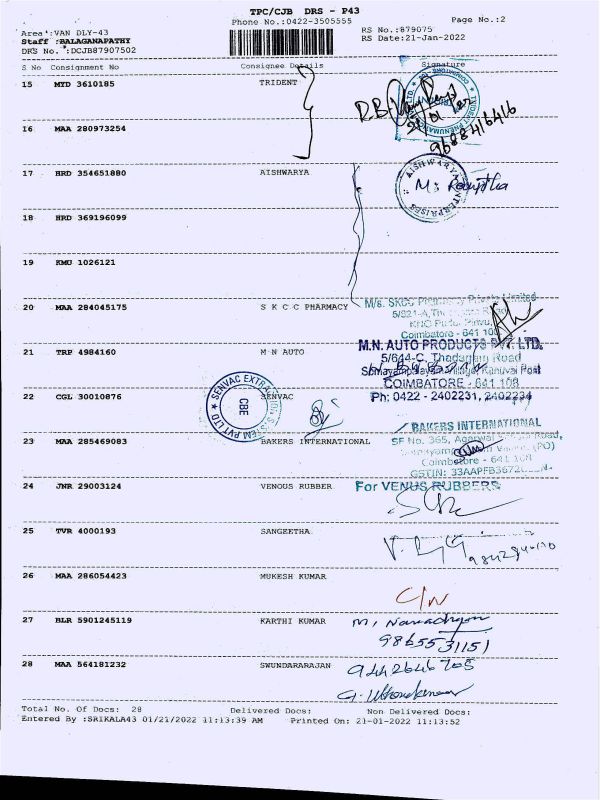 TPC/CJB DRS - P43
Phone No.:0422-3505555
Page No.:2
Area :VAN DLY-43
RS No.:879075
Staff :BALAGANAPATHY
RS Date:21-Jan-2022
DRS No. :DCJB87907502
S No Consignment No Consignee Details Signature
15 MYD 3610185 TRIDENT
16 MAA 280973254
9688416416
17 HRD 354651880 AISHWARYA
AISHWARYA ENTERPRISES
18 HRD 369196099
19 KMU 1026121
20 MAA 284045175 S K C C PHARMACY
M/s. SKCC Private Limited
5/521-A,
Coimbatore - 641 108
21 TRP 4984160 M N AUTO
M.N. AUTO PRODUCTS PVT. LTD.
5/644-C, Thadagam Road
Somayampalayam Village, Kanuvai Post
COIMBATORE - 641 108
Ph: 0422 - 2402231, 2402234
22 CGL 30010876 SENVAC
SENVAC EXTRACTION SYSTEM PVT LTD
CBE
23 MAA 285469083 BAKERS INTERNATIONAL
BAKERS INTERNATIONAL
SF No. 365, Agarwal Road,
(PO)
Coimbatore - 641 108
GSTIN: 33AAPFB3672
24 JNR 29003124 VENOUS RUBBER
For VENUS RUBBERS
25 TVR 4000193 SANGEETHA
26 MAA 286054423 MUKESH KUMAR
C/N
27 BLR 5901245119 KARTHI KUMAR
9865531151
28 MAA 564181232 SWUNDARARAJAN
9442646705
Total No. Of Docs: 28 Delivered Docs: Non Delivered Docs:
Entered By :SRIKALA43 01/21/2022 11:13:39 AM Printed On: 21-01-2022 11:13:52